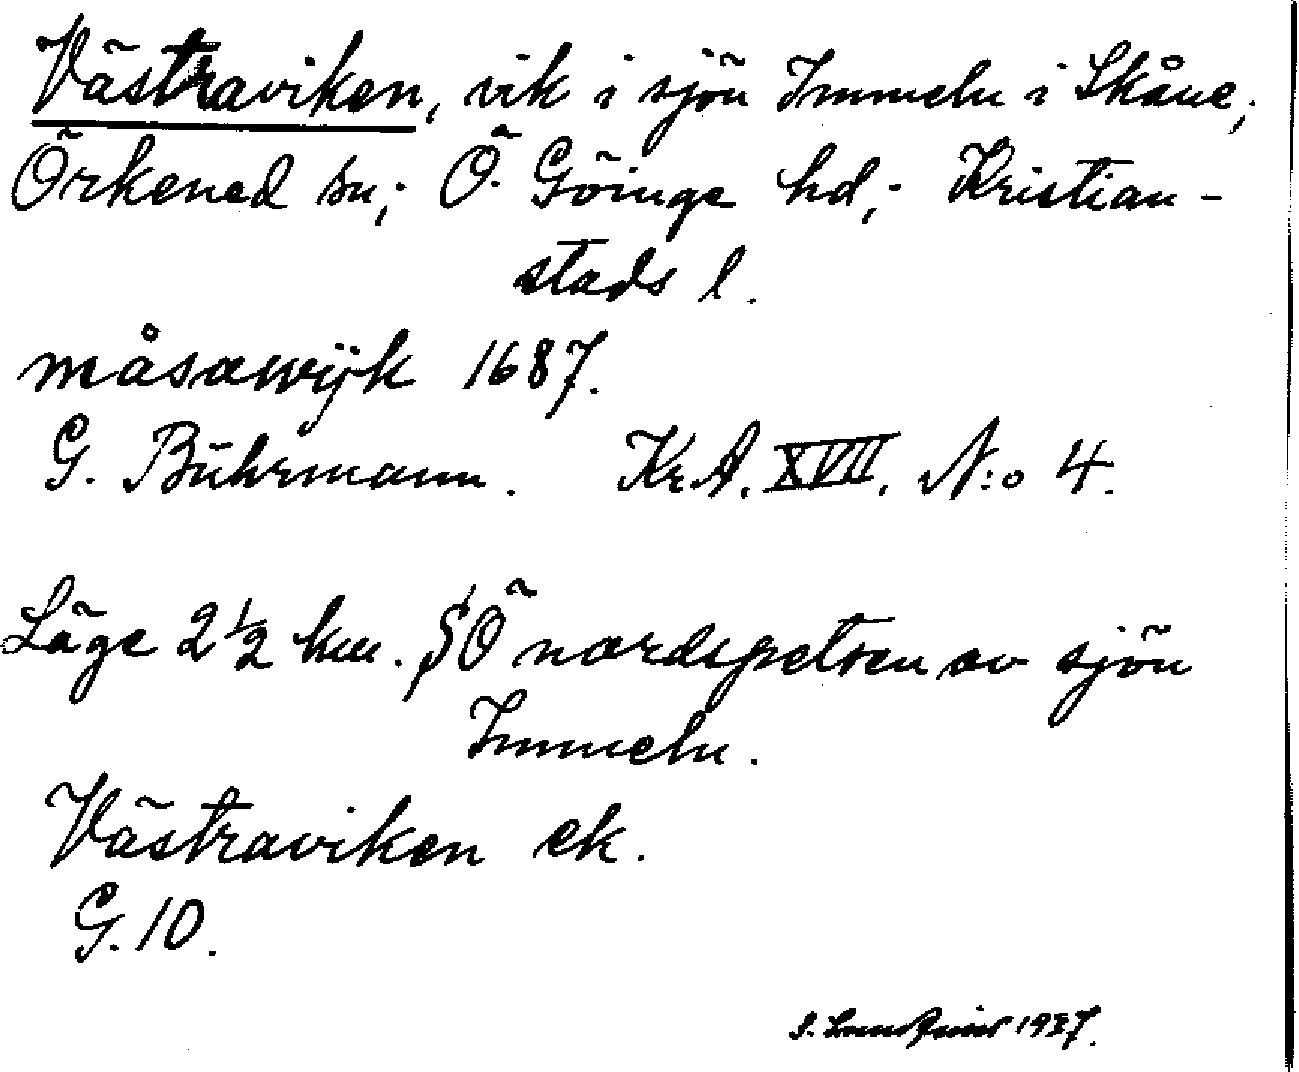 Västraviken, vik i sjön Immeln i Skåne,
Örkened sn; Ö. Göinge hd; Kristian-
stads l.
måsawijk 1687.
G. Buhrmann. Kr.A. XVII. N:o 4.
Läge 2 1/2 km. SÖ nordspetsen av sjön
Immeln.
Västraviken ek.
G. 10.
1937.